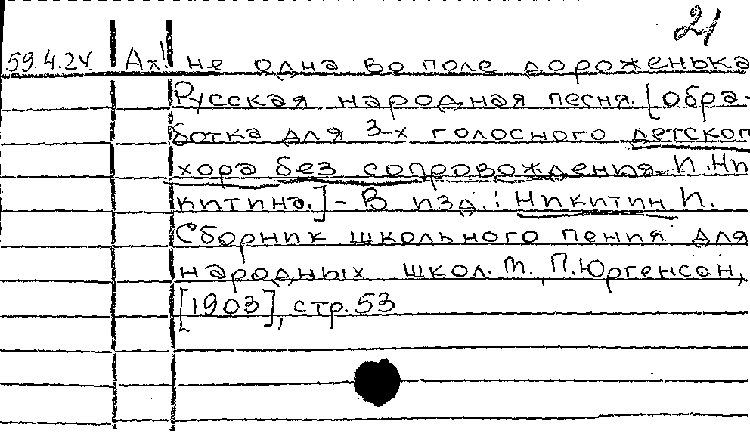 21
59.4.24 Ах! не одна во поле дороженька
Русская народная песня. [обра-
ботка для 3-х голосного детского
хора без сопровождения И. Ни
китина.] - В изд.: Никитин И.
Сборник школьного пения для
народных школ. М., П. Юргенсон,
[1903], стр. 53